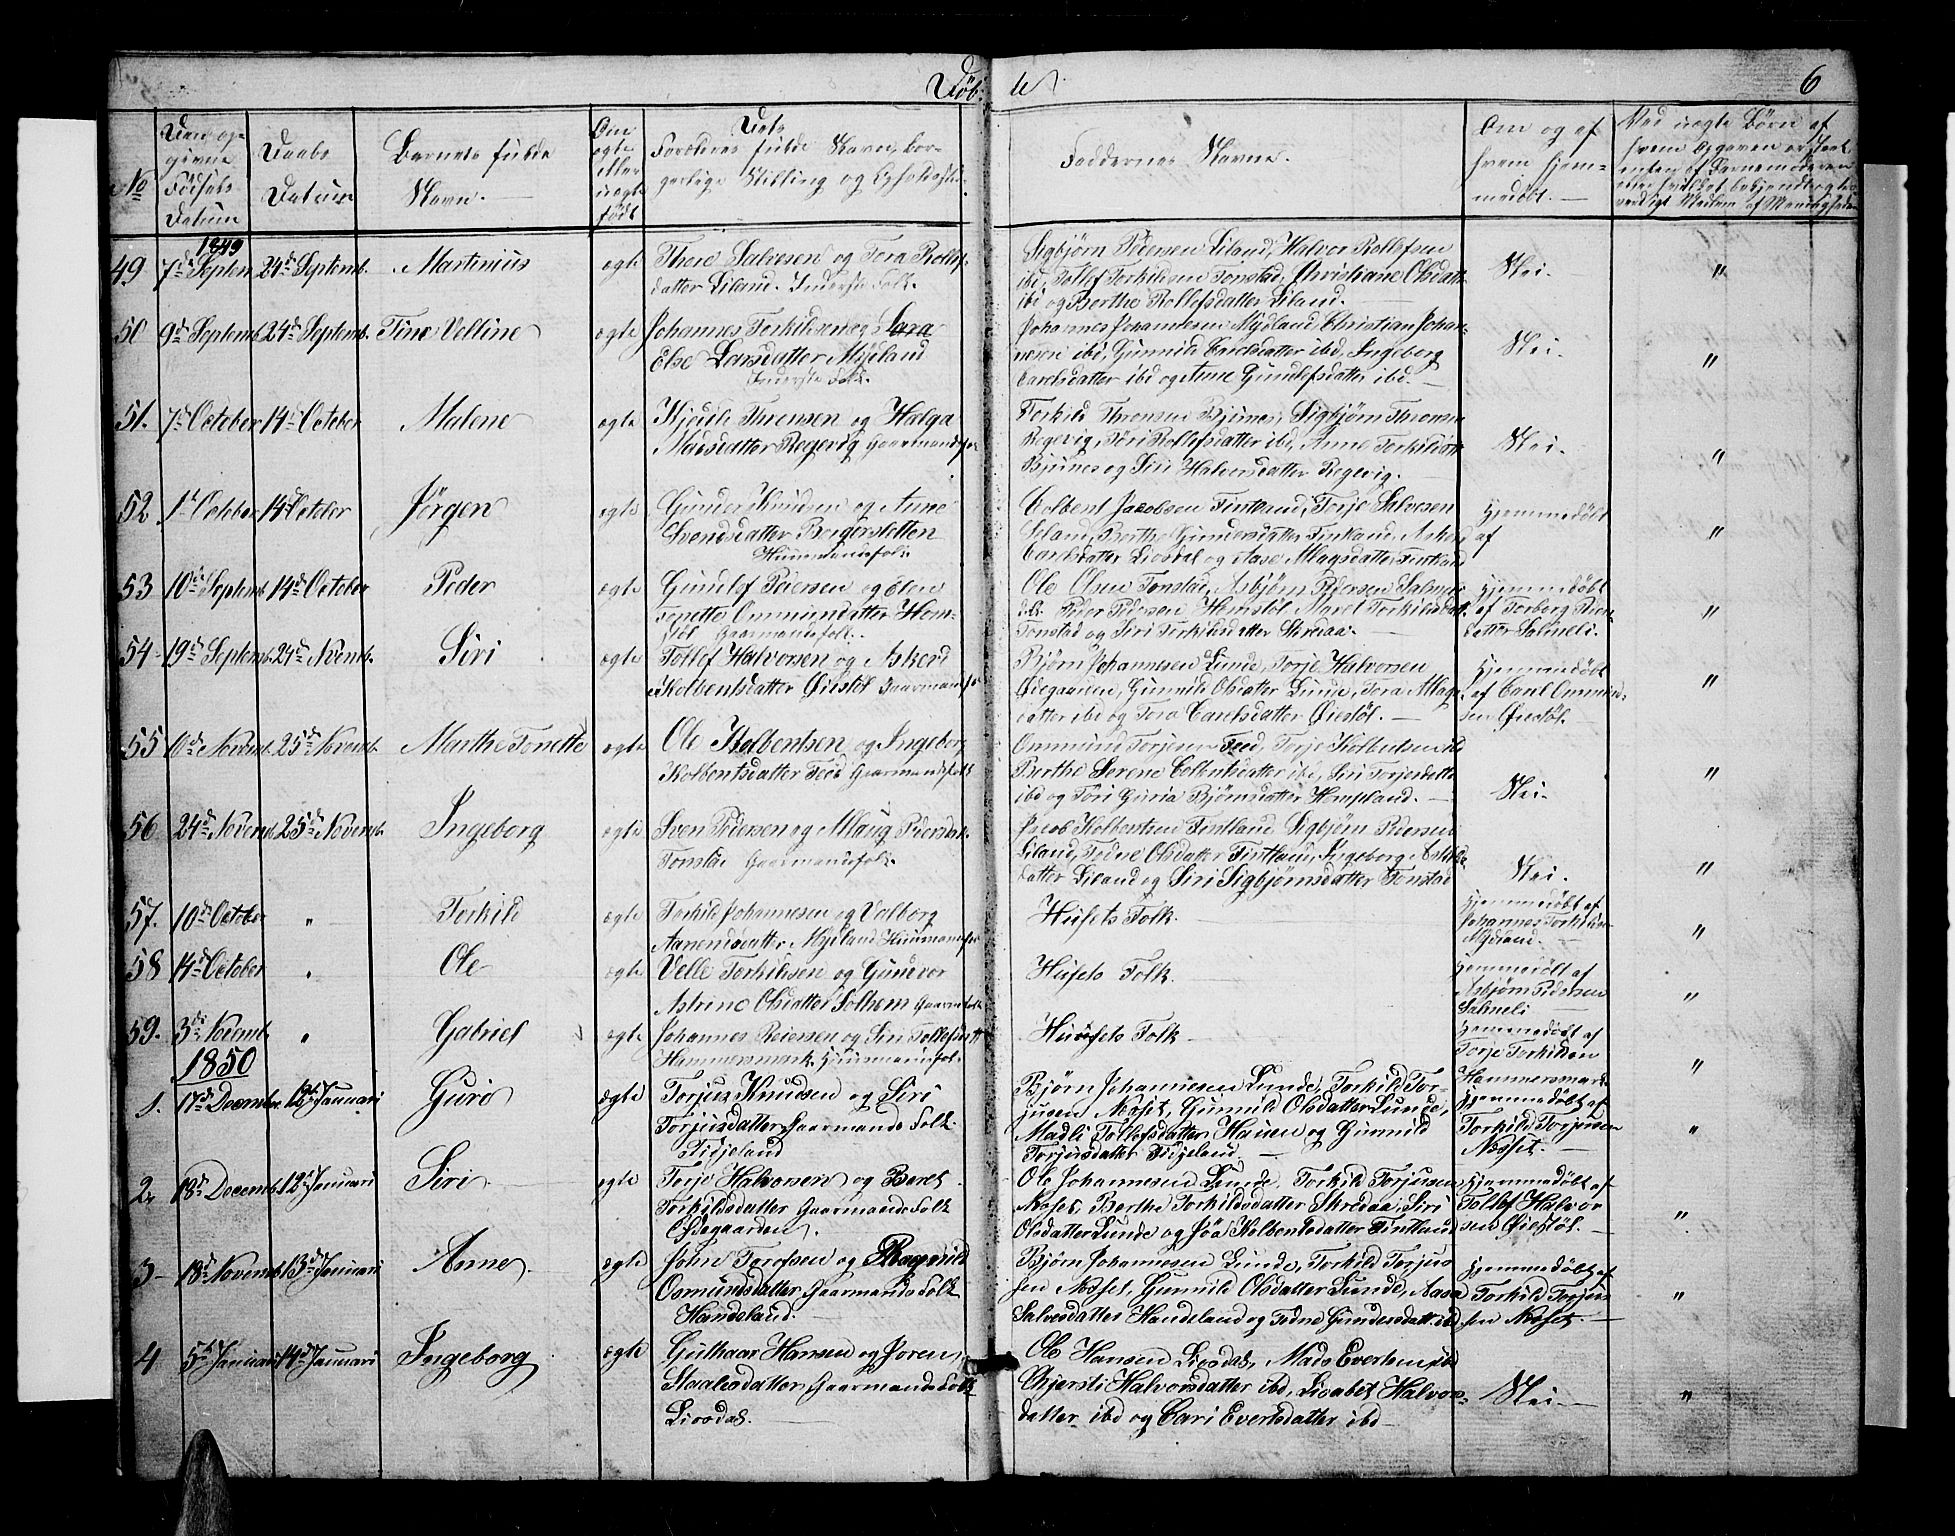 Døb te
6
No
Den op-
givne
Fødsels
Datum
Daabs
Datum
Barnets fulde
Navn.
Om
ægte
eller
uægte
født
Dets
Forældres fulde Navn, bor-
gerlige Stilling og
Faddernes Navne.
Om og af
hvem hjem-
medøbt.
Med uægte Børn af
hvem Opgaven er skeet
enten af Barnemoderen
eller
Medlem af Menigheden
1849
49 7de Septem. 24de Septemb. Martinius ægte Thore Salvesen og Tora Rollefs-
datter Liland. Inderste Folk.
Sigbjørn Pedersen Liland, Halvor Rollefsen
ibd, Tollef Torkildsen Tonstad, Christiane Olsdatt.
ibd og Berthe Rollefsdatter Liland.
Nei.
"
50 9de Septemb. 24de Septemb. Tine Velline ægte Johannes Torkildsen og Sara
Else Larsdatter Myland
Inderste Folk.
Johannes Johannesen Mydland, Christian Johan-
nesen ibd, Gunnild Carlsdatter ibd, Ingeborg
Carelsdatter ibd og Anne Gundlefsdatter ibd.
Nei.
"
51. 7de October 14de October Malene ægte Kjedel Thronsen og Helga
Madsdatter Regevig Gaarmandsfol
Torkild Thronsen Bjunes, Sigbjørn Thronsen
Regevig, Töri Rollefsdatter ibd, Anne Torkildsdtt
Bjunes og Siri Halversdatter Regevig.
Nei.
"
52 1st October 14de October Jørgen ægte Gunder Knudsen og Anne
Svendsdatter Borgersletten
Huusmandsfolk
Colbent Jacobsen Fintland, Torje Salvesen
Liland, Berthe Gundersdatter Fintland, Askerd
Carlsdatter Liosdal og Aase Allagsdatter Fintland
Hjemmedøbt
af
"
53 10de Septemb. 14de October Peder ægte Gundlef Peersen og Elen
Tonette Ommundatter Hom-
støl Gaarmandsfolk.
Ole Olsen Tonstad, Asbjørn Pedersen Salmeli
ibd. Peder Pedersen Homstøl, Maret Torkildsdatt.
Tonstad og Siri Torkildsdatter Skredaa.
Hjemmedøbt
af Torborg Peders-
datter Salmeli.
"
54 19de Septemb. 24de Novemb. Siri ægte Tollef Halvorsen og Askerd
Kolbentsdatter Øiestøl Gaarmandsfol
Bjørn Johannesen Lunde, Torje Halvorsen
Ødegaarden, Gunnild Olsdatter Lunde, Tora Allags-
datter ibd og Tora Carlsdatter Øiestøl.
Hjemmedøbt
af Carl Ommund-
sen Øiestøl.
"
55 10de Novemb. 25de Novemb. Marthe Tonette ægte Ole Kolbentsen og Ingeborg
Kolbentsdatter Feed Gaarmandsfolk
Ommund Torjesen Feed, Torje Kolbentsen ibd
Berthe Serene Colbentsdatter ibd, Siri Torjesdatter
ibd og Töri Guria Bjørnsdatter Hompland.
Nei.
"
56 24de Novemb. 25de Novemb. Ingeborg ægte Sven Pedersen og Allaug Pedersdatt.
Tonstad Gaarmandsfolk.
Jacob Kolbentsen Fintland, Sigbjørn Pedersen
Liland, Tedne Olsdatter Fintland, Ingeborg
datter Liland og Siri Sigbjørnsdatter Tonstad
Nei.
"
57. 10de October " Torkild ægte Torkild Johannesen og Valborg
Aanensdatter Myeland Huusmandsfol
Husets Folk.
Hjemmedøbt af
Johannes Torkildsen
Mydland.
"
58 14de October " Ole ægte Velle Torkildsen og Gundvor
Astrine Olsdatter Solhom Gaarmsfolk
Husets Folk
Hjemmedøbt af
Asbjørn Pedersen
Salmeli
"
59. 3de Novemb. " Gabriel ægte Johannes Reiersen og Siri Tollefsdatt
Hammersmark, Huusmandsfolk.
Husets Folk
Hjemmedøbt af
Torje Torkildsen
Hammersmark
"
1850
1. 17de December 12de Januari Guro ægte Torjus Knudsen og Siri
Torjusdatter, Gaarmands Folk.
Fidjeland
Bjørn Johannesen Lunde, Torkild Tor-
jusen Næset, Gunnild Olsdatter Lunde,
Madli Tollefsdatter, Hauen og Gunnild
Torjusdatter Fidjeland.
Hjemmedøbt af
Torkild Torjusen
Næset.
"
2. 18de Decemb. 12te Januari Siri. ægte Torje Halvorsen og Beret
Torkildsdatter Gaarmands Folk
Ødegaarden.
Ole Johannesen Lunde, Torkild Torjusen
Næset, Berthe Torkildsdatter Skredaa, Siri
Olsdatter Lunde og Jöa Kolbentsdatter Fintland
Hjemmedøbt af
Tollef Halvor-
sen Øiestøl.
"
3 18de Novemb. 13de Januari Anne. ægte John Torufsen og Ragnild
Osmundsdatter, Gaarmands Folk
Handeland.
Bjørn Johannesen Lunde, Torkild Torjus
sen Næset, Gunnild Olsdatter Lunde, Aasa
Salvesdatter Handeland og Tedne Gundersdatt. ibd
Hjemmedøbt af
Torkild Torju-
sen Næset.
"
4 5te Januari 14de Januari Ingeborg ægte Guthaar Hansen og Joren
Staalesdatter, Gaarmands Folk
Liosdal.
Ole Hansen Liosdal, Mads Evertsen ibd
Chjersti Halvorsdatter ibd, Lisabet Halvors-
datter ibd og Cari Evertsdatter ibd
Nei.
"